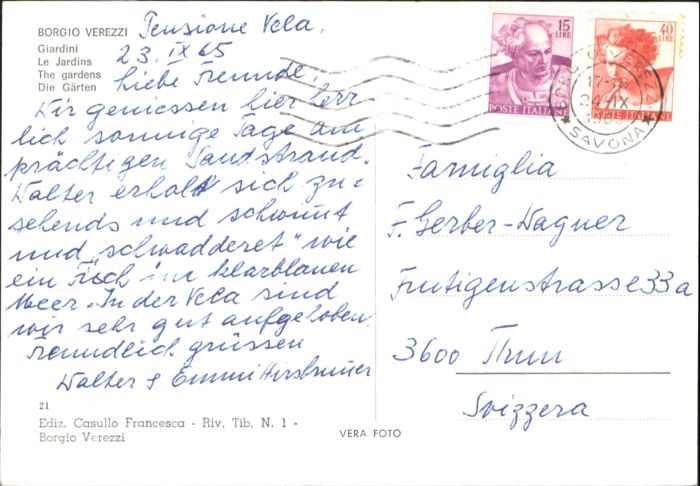 BORGIO VEREZZI
Giardini
Le Jardins
The gardens
Die Gärten
Pensione Vela,
23. IX 65
Liebe Freunde,
Wir geniessen hier herr-
lich sonnige Tage am
prächtigen Sandstrand.
Walter erholt sich zu-
sehends und schwimmt
und „schwadderet" wie
ein Fisch im klarblauen
Meer. In der Vela sind
wir sehr gut aufgehoben.
Freundlich grüssen
Walter & Emmi Hirsbrunner
21
Ediz. Casullo Francesca - Riv. Tib. N. 1 -
Borgio Verezzi
VERA FOTO
15
LIRE
POSTE ITALIANE
40
LIRE
POSTE ITALIANE
17-18
24-IX
SAVONA
Famiglia
F. Gerber-Wagner
Frutigenstrasse 33a
3600 Thun
Svizzera